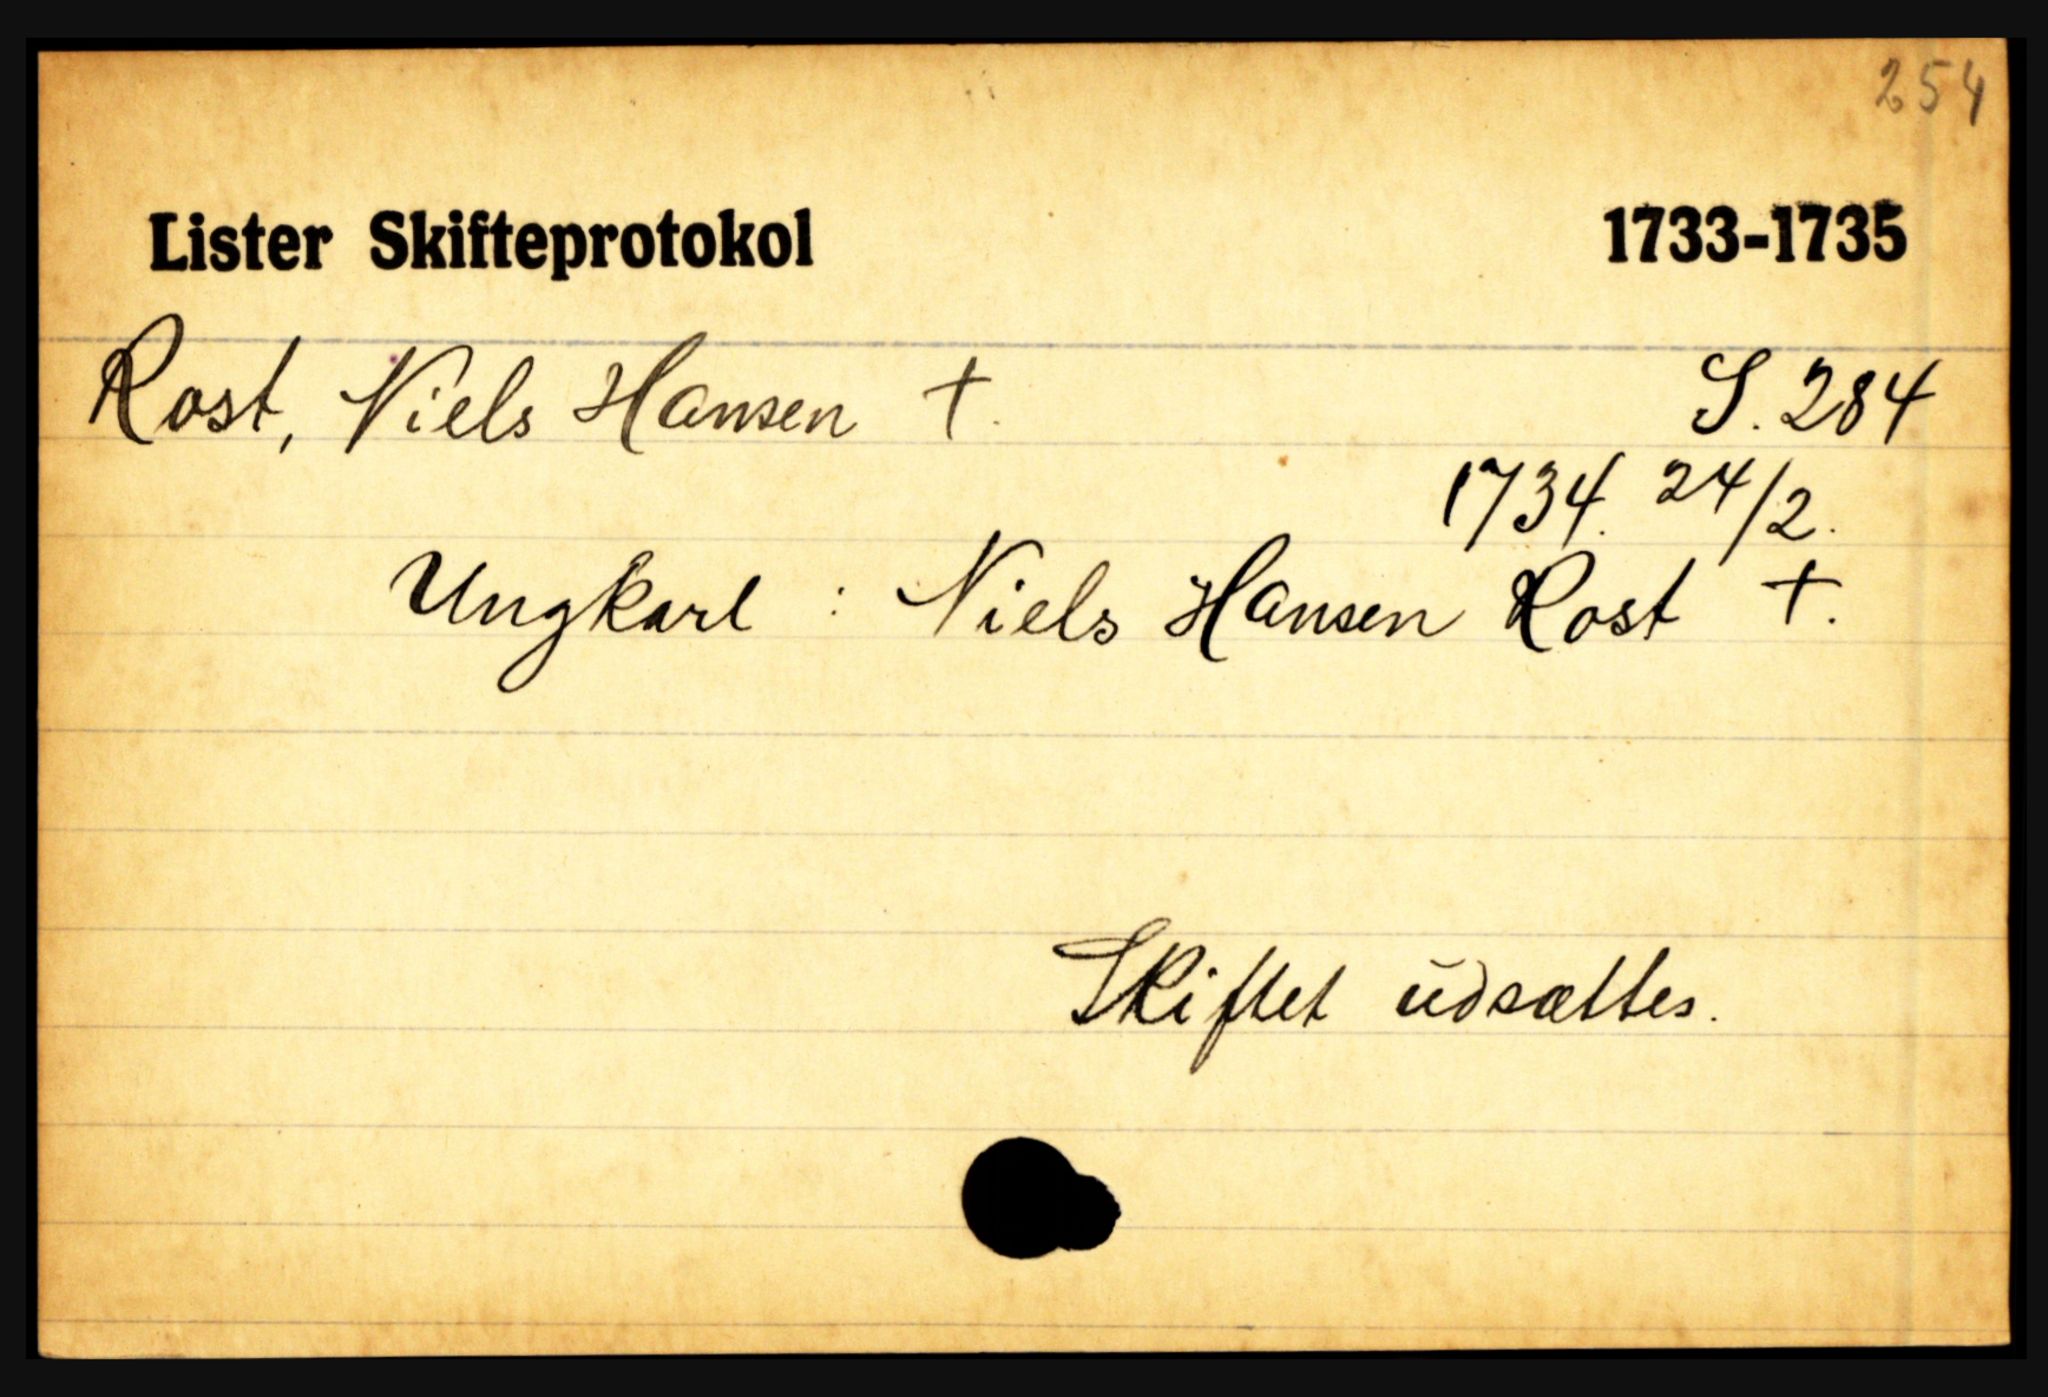 254
Lister Skifteprotokol 1733-1735
Rost, Niels Hansen †. S. 284
1734. 24/2.
Ungkarl : Niels Hansen Rost †.
Skiftet udsættes.